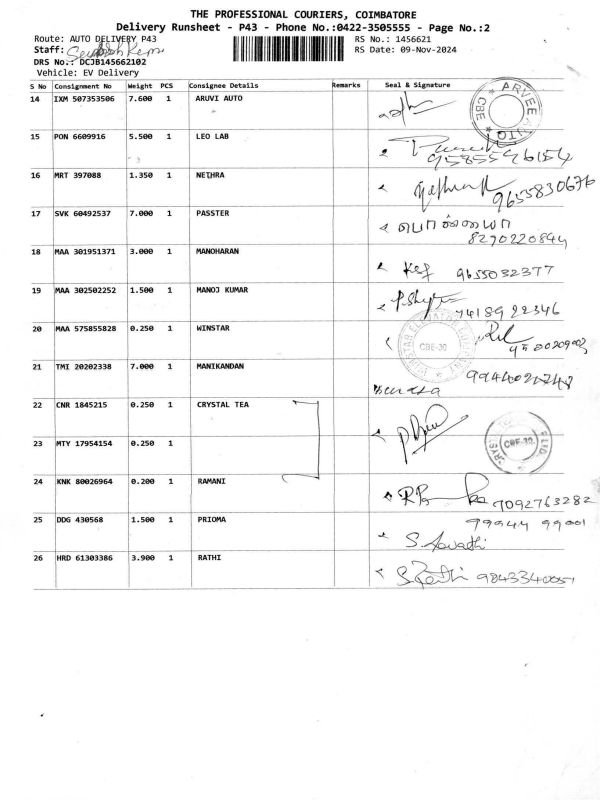 THE PROFESSIONAL COURIERS, COIMBATORE
Delivery Runsheet - P43 - Phone No.:0422-3505555 - Page No.:2
Route: AUTO DELIVERY P43 RS No.: 1456621
Staff: RS Date: 09-Nov-2024
DRS No.: DCJB145662102
Vehicle: EV Delivery
S No Consignment No Weight PCS Consignee Details Remarks Seal & Signature
14 IXM 507353506 7.600 1 ARUVI AUTO
CBE
15 PON 6609916 5.500 1 LEO LAB
9585596154
16 MRT 397088 1.350 1 NETHRA
9655830676
17 SVK 60492537 7.000 1 PASSTER
8270220844
18 MAA 301951371 3.000 1 MANOHARAN
9655032377
19 MAA 302502252 1.500 1 MANOJ KUMAR
7418922346
20 MAA 575855828 0.250 1 WINSTAR
CBE-30
21 TMI 20202338 7.000 1 MANIKANDAN
22 CNR 1845215 0.250 1 CRYSTAL TEA
23 MTY 17954154 0.250 1
CBE-30
24 KNK 80026964 0.200 1 RAMANI
7092763282
25 DDG 430568 1.500 1 PRIOMA
79944 99001
26 HRD 61303386 3.900 1 RATHI
S. Rathi 9843340051